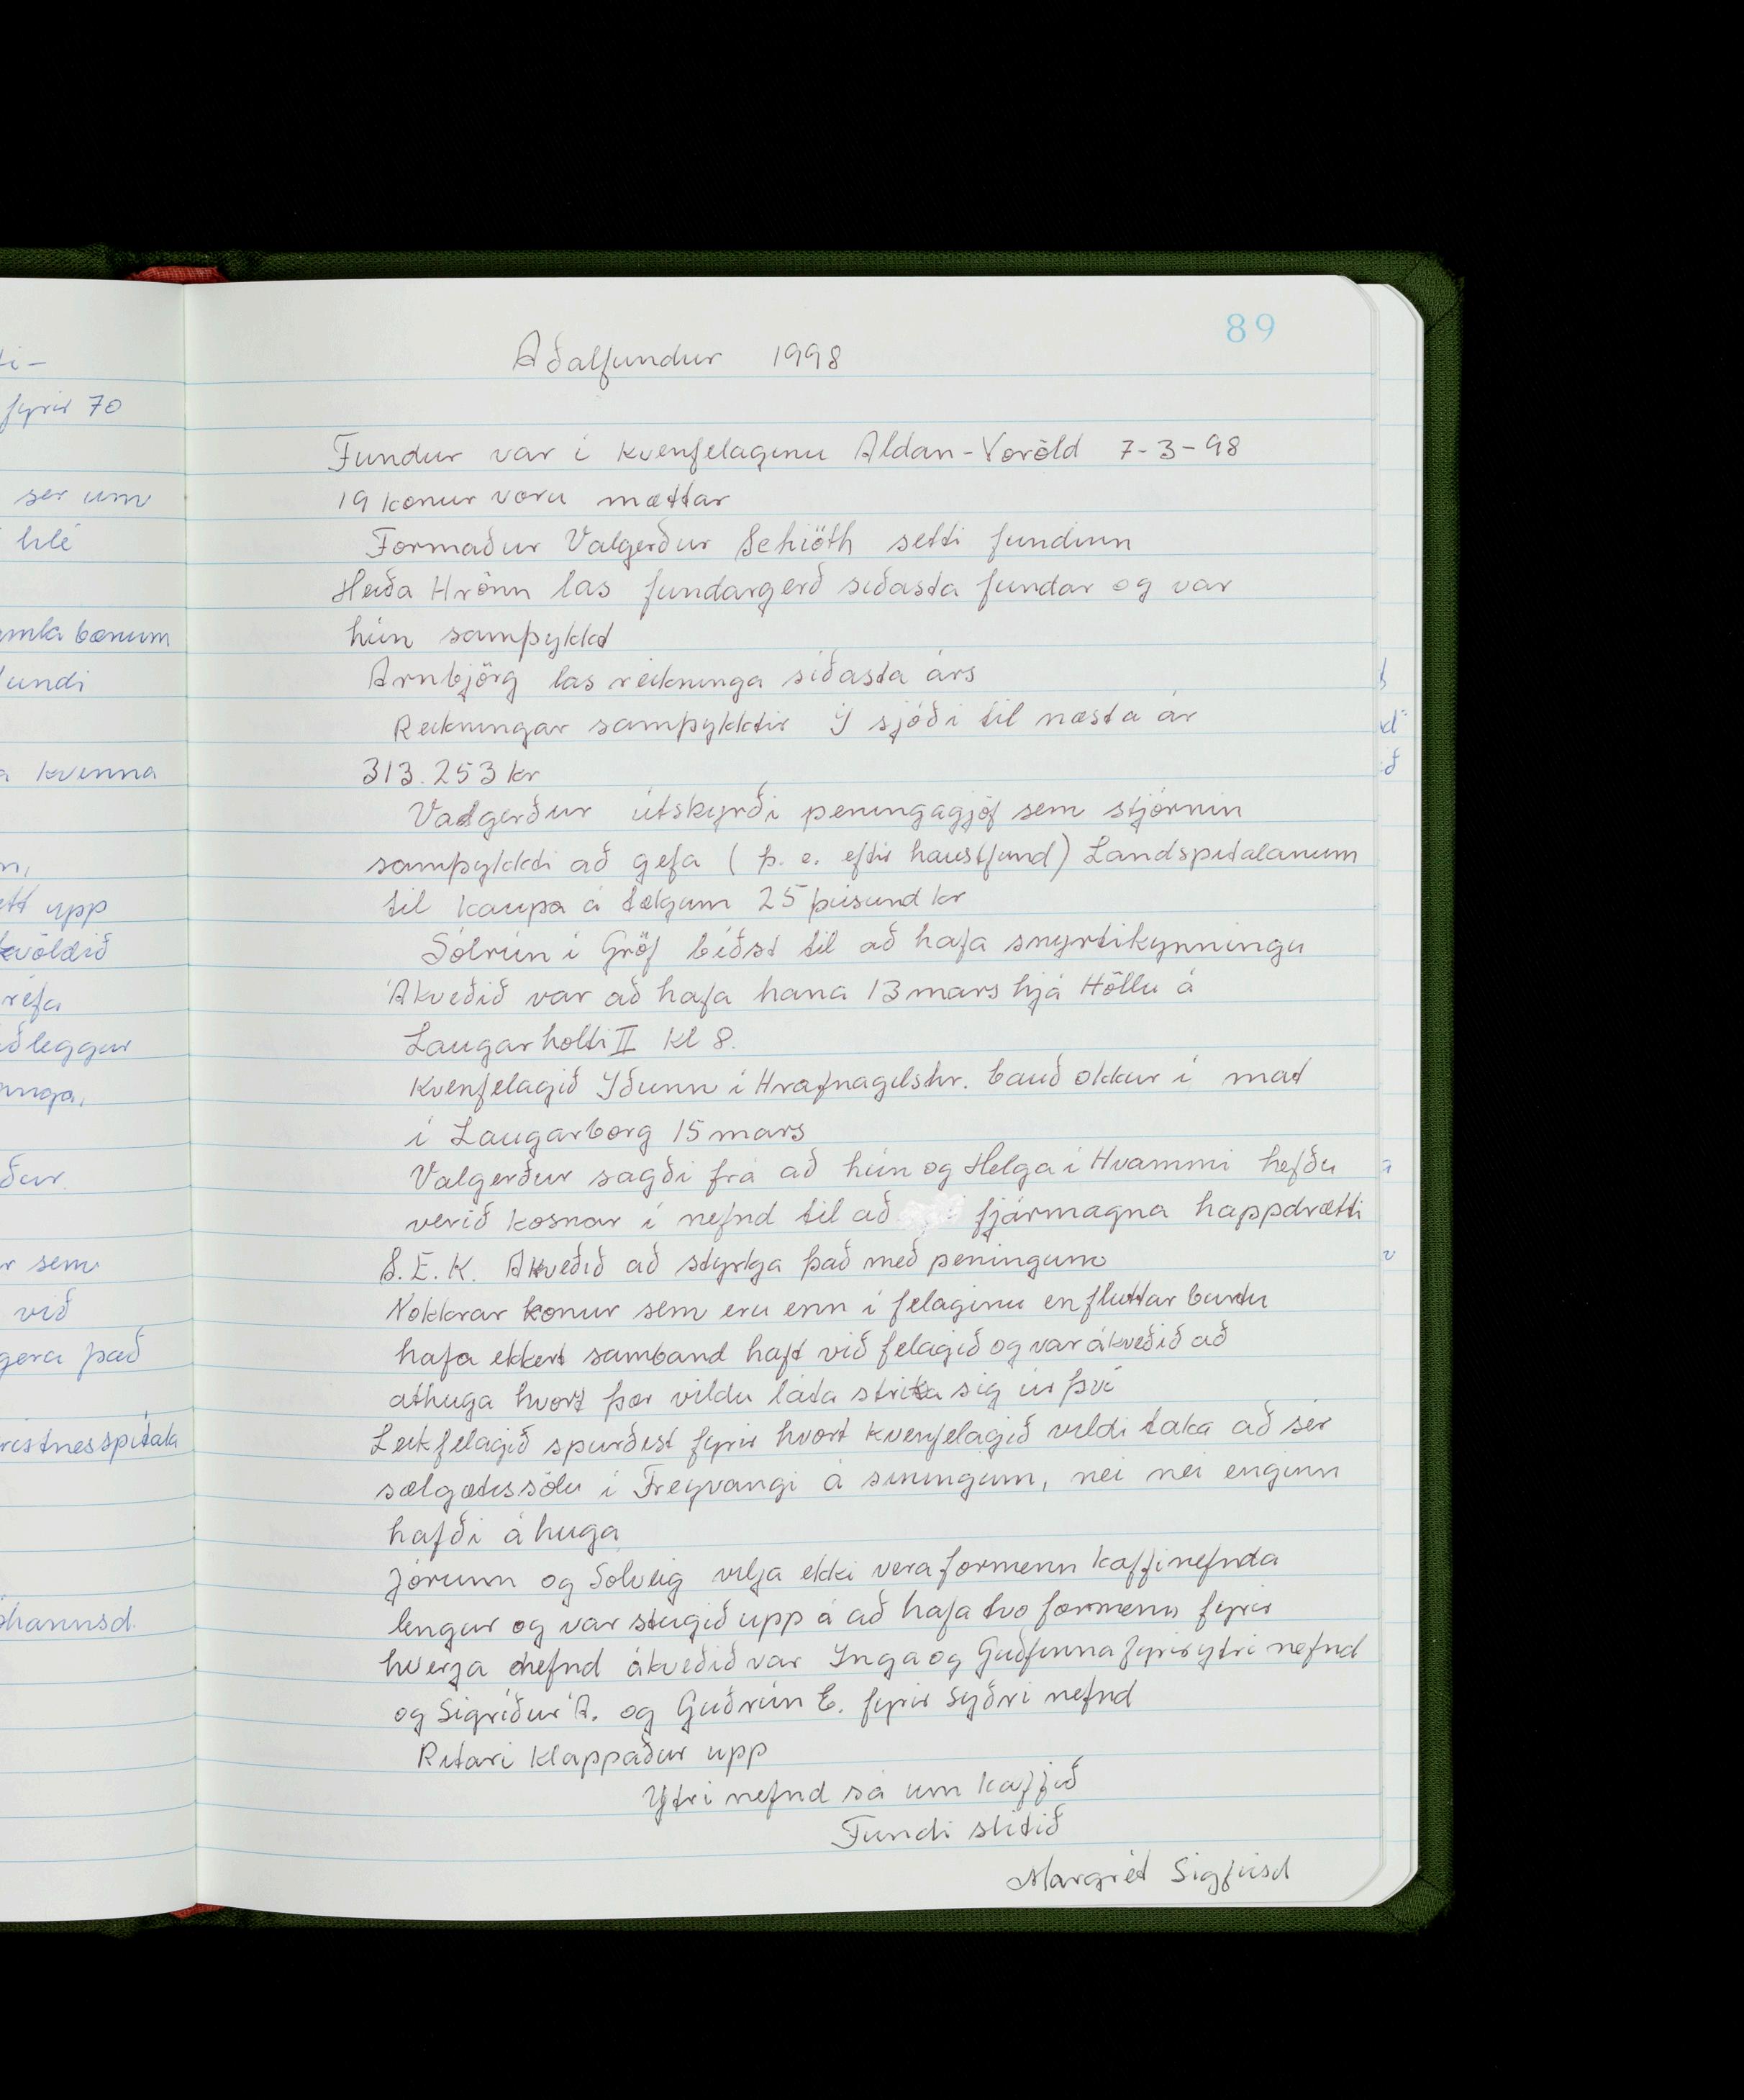 89
Aðalfundur 1998
Fundur var i kvenfelaginu Aldan-Voröld 7-3-98
19 konur voru mættar
Formaður Valgerður Schiöth setti fundinn
Heiða Hrönn las fundargerð siðasta fundar og var
hún samþykkt
Arnbjörg las reikninga síðasta árs
Reikningar samþykktir Í sjóði til næsta ár
313.253 kr
Valgerður útskyrði peningagjöf sem stjórnin
samþykkti að gefa ( þ. e. eftir haustfund) Landspitalanum
til kaupa á tækjum 25 þúsund kr
Sólrún i Gröf bíðst til að hafa snyrtikynningu
Ákveðið var að hafa hana 13 mars hjá Höllu á
Laugarholti II kl 8.
Kvenfelagið Iðunn i Hrafnagilshr. bauð okkur í mat
í Laugarborg 15 mars
Valgerður sagði frá að hún og Helga í Hvammi hefðu
verið kosnar í nefnd til að fjármagna happdrætti
S.E.K. Akveðið að styrkja það með peningum
Nokkrar konur sem eru enn í felaginu en fluttar burtu
hafa ekkert samband haft við felagið og var ákveðið að
athuga hvort þær vildu láta strika sig úr því
Leikfelagið spurðist fyrir hvort kvenfelagið vildi taka að sér
sælgætissölu í Freyvangi á syningum, nei nei enginn
hafði áhuga
Jórunn og Sólveig vilja ekki vera formenn kaffinefnda
lengur og var stugið upp á að hafa tvo formenn fyrir
hverja nefnd ákveðið var Inga og Guðfinna fyrir ytri nefnd
og Sigríður Á. og Guðrún E. fyrir syðri nefnd
Ritari klappaður upp
Ytri nefnd sá um kaffið
Fundi slitið
Margrét Sigfúsd
fyrir 70
ser um
hlé
bænum
kvenna
upp
við
gera það